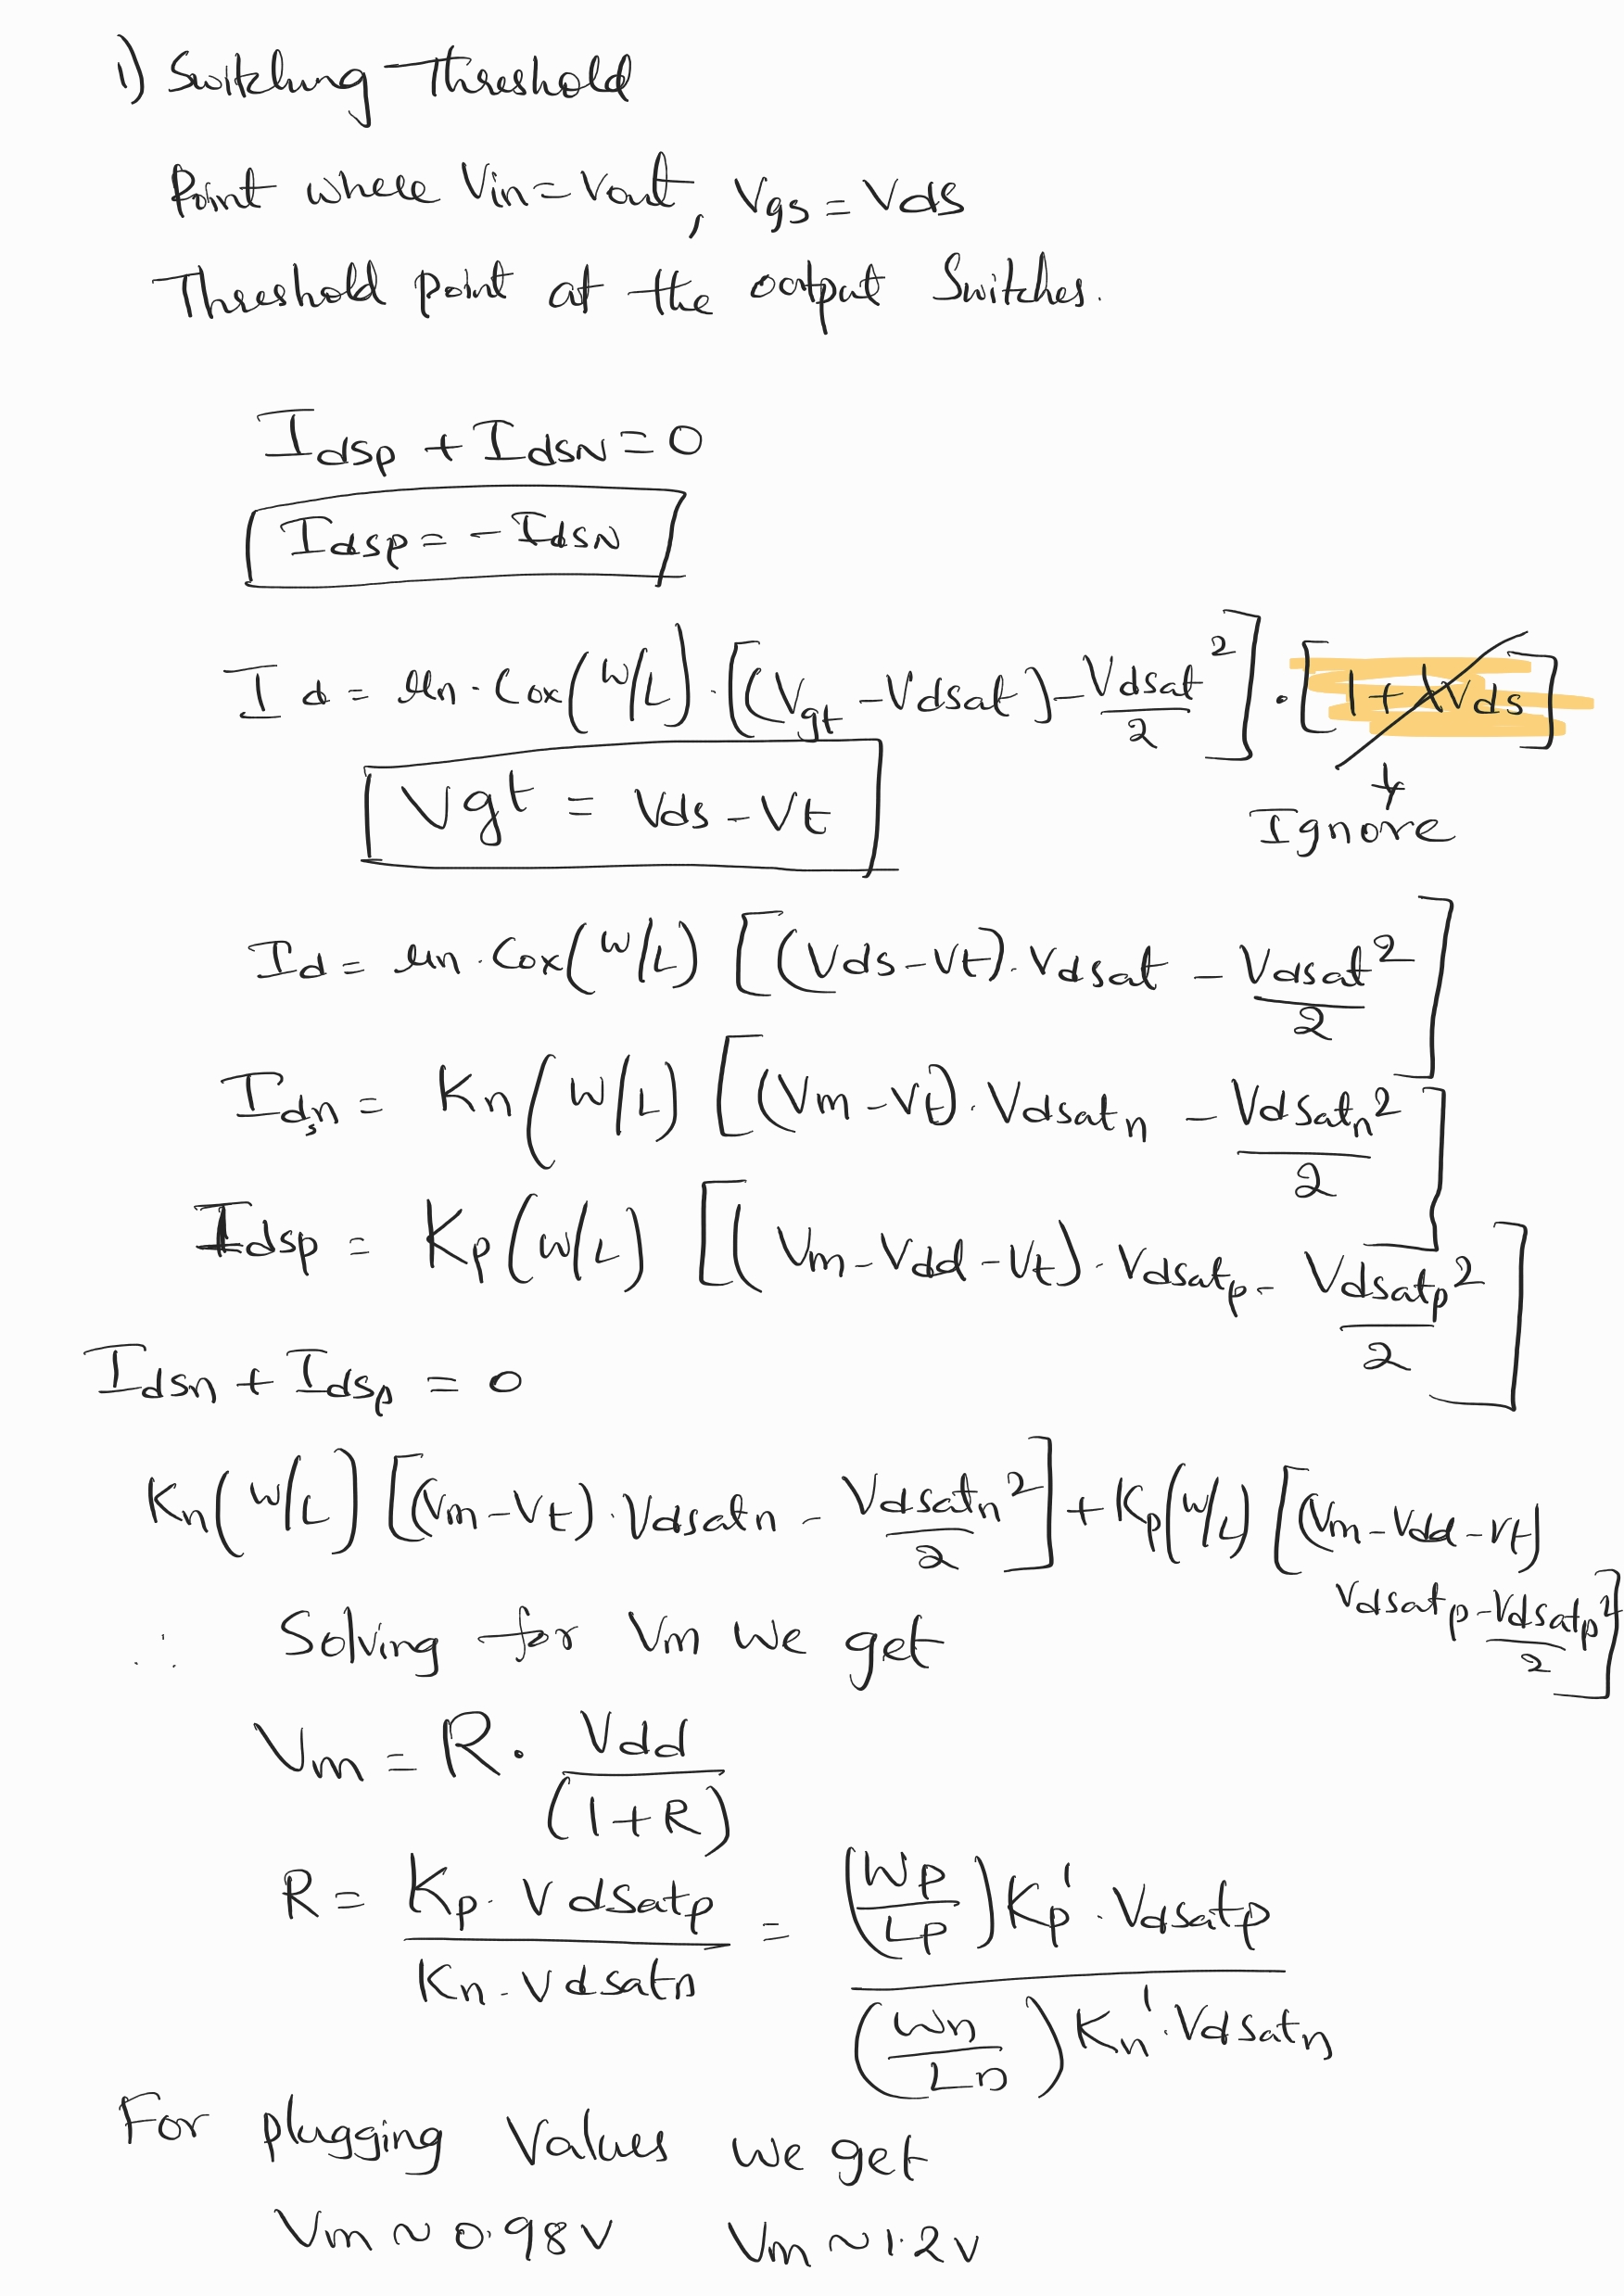 1) Switching Threshold
Point where Vin = Vout, Vgs = Vds
Threshold point at the output Switches.
Idsp + IdsN = 0
Idsp = - IdsN
Id = μn · Cox (W/L) · [(Vgt - Vdsat) - Vdsat²/2] · [1 + λVds]
Ignore
Vgt = Vds - Vt
Id = μn · Cox (W/L) [(Vds - Vt) · Vdsat - Vdsat²/2]
Idsn = Kn (W/L) [(Vm - Vt) · Vdsatn - Vdsatn²/2]
Idsp = Kp (W/L) [(Vm - Vdd - Vt) · Vdsatp - Vdsatp²/2]
Idsn + Idsp = 0
Kn (W/L) [(Vm - Vt) · Vdsatn - Vdsatn²/2] + Kp (W/L) [(Vm - Vdd - Vt)
Vdsatp - Vdsatp²/2]
∴ Solving for Vm we get
Vm = R · Vdd/(1+R)
R = Kp · Vdsatp / Kn · Vdsatn = (Wp/Lp) Kp' · Vdsatp / (Wn/Ln) Kn' · Vdsatn
For plugging Values we get
Vm ~ 0.98 V Vm ~ 1.2 V